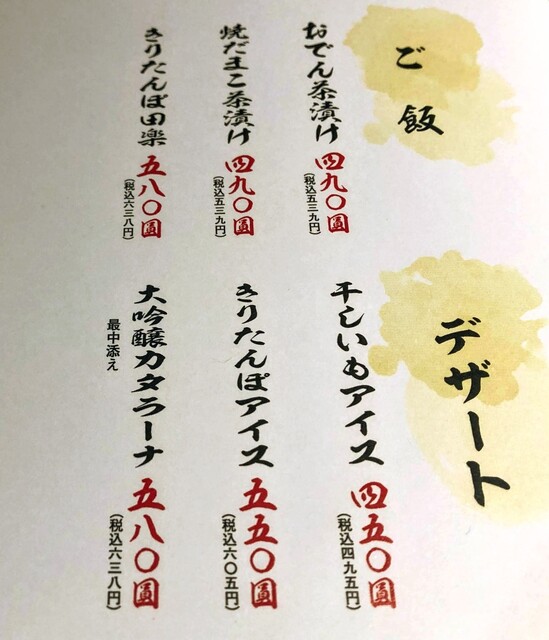 ご飯
おでん茶漬け 四九〇圓
(税込五三九円)
焼だまこ茶漬け 四九〇圓
(税込五三九円)
きりたんぽ田楽 五八〇圓
(税込六三八円)
デザート
干しいもアイス 四五〇圓
(税込四九五円)
きりたんぽアイス 五五〇圓
(税込六〇五円)
大吟醸カタラーナ 五八〇圓
最中添え
(税込六三八円)